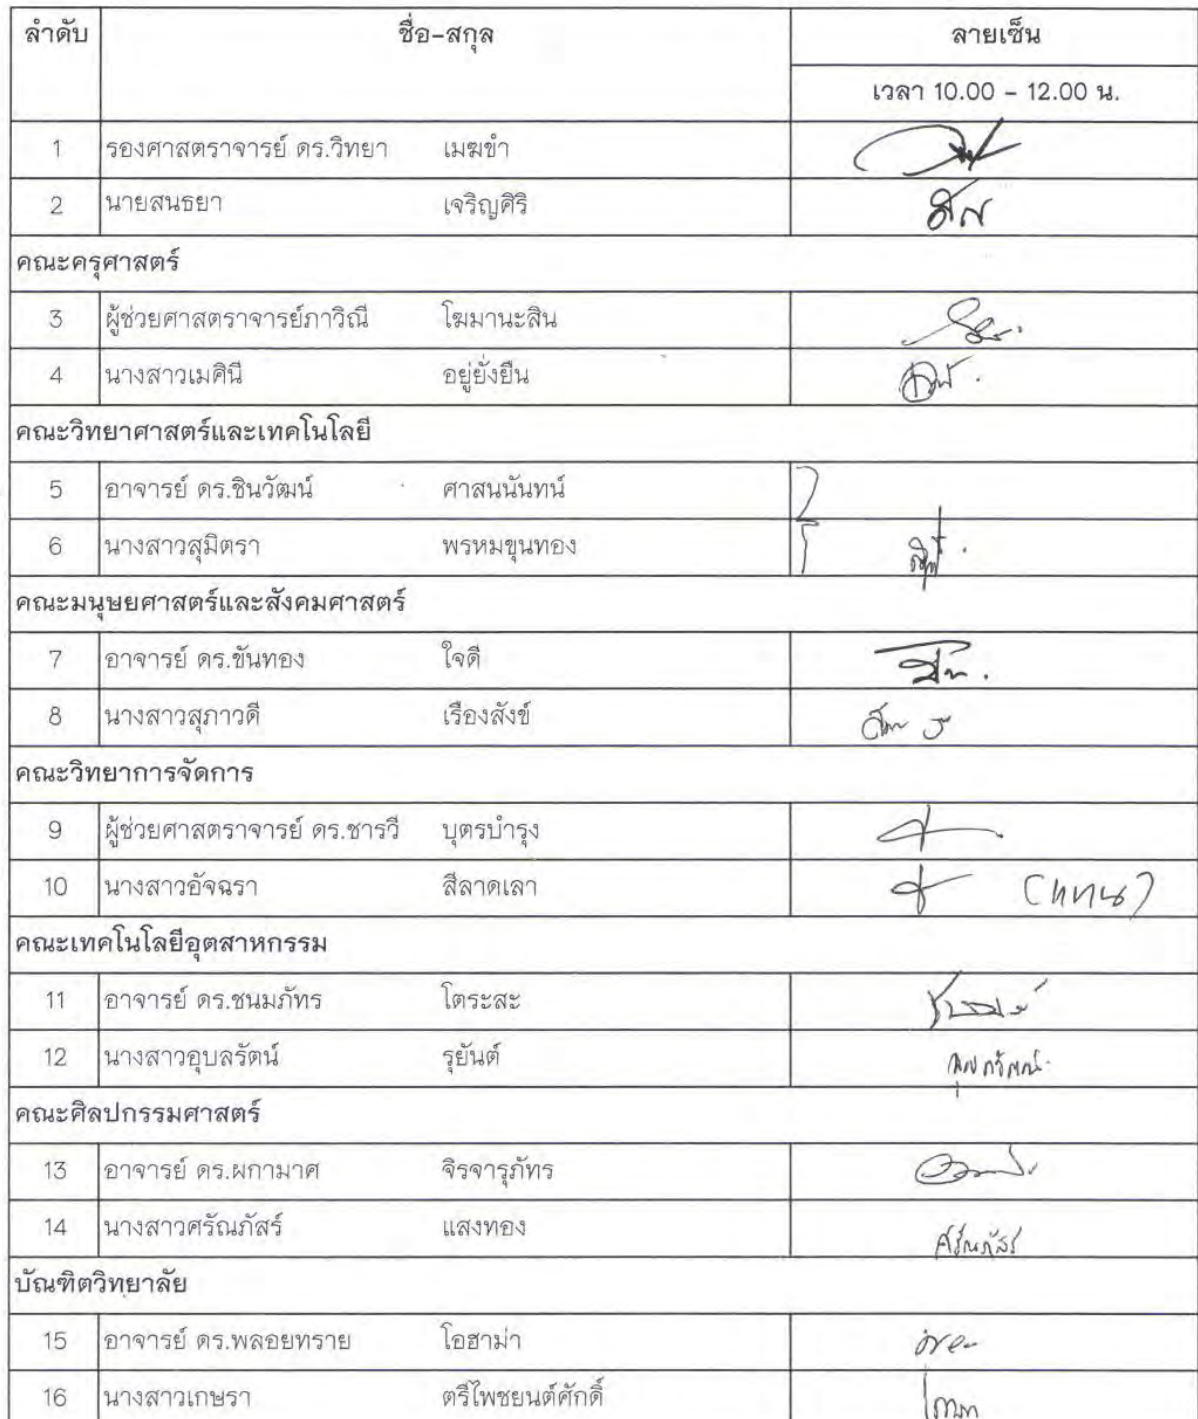 ลำดับ ชื่อ-สกุล ลายเซ็น
เวลา 10.00 - 12.00 น.
1 รองศาสตราจารย์ ดร.วิทยา เมฆขำ
2 นายสนธยา เจริญศิริ
คณะครุศาสตร์
3 ผู้ช่วยศาสตราจารย์ภาวิณี โฆมานะสิน
4 นางสาวเมศินี อยู่ยั่งยืน
คณะวิทยาศาสตร์และเทคโนโลยี
5 อาจารย์ ดร.ชินวัฒน์ ศาสนนันทน์
6 นางสาวสุมิตรา พรหมขุนทอง
คณะมนุษยศาสตร์และสังคมศาสตร์
7 อาจารย์ ดร.ขันทอง ใจดี
8 นางสาวสุภาวดี เรืองสังข์
คณะวิทยาการจัดการ
9 ผู้ช่วยศาสตราจารย์ ดร.ชารวี บุตรบำรุง
10 นางสาวอัจฉรา สีลาดเลา (แทน)
คณะเทคโนโลยีอุตสาหกรรม
11 อาจารย์ ดร.ชนมภัทร โตระสะ
12 นางสาวอุบลรัตน์ รุยันต์ อุบลรัตน์
คณะศิลปกรรมศาสตร์
13 อาจารย์ ดร.ผกามาศ จิรจารุภัทร
14 นางสาวศรัณภัสร์ แสงทอง ศรัณภัสร์
บัณฑิตวิทยาลัย
15 อาจารย์ ดร.พลอยทราย โอฮาม่า
16 นางสาวเกษรา ตรีไพชยนต์ศักดิ์